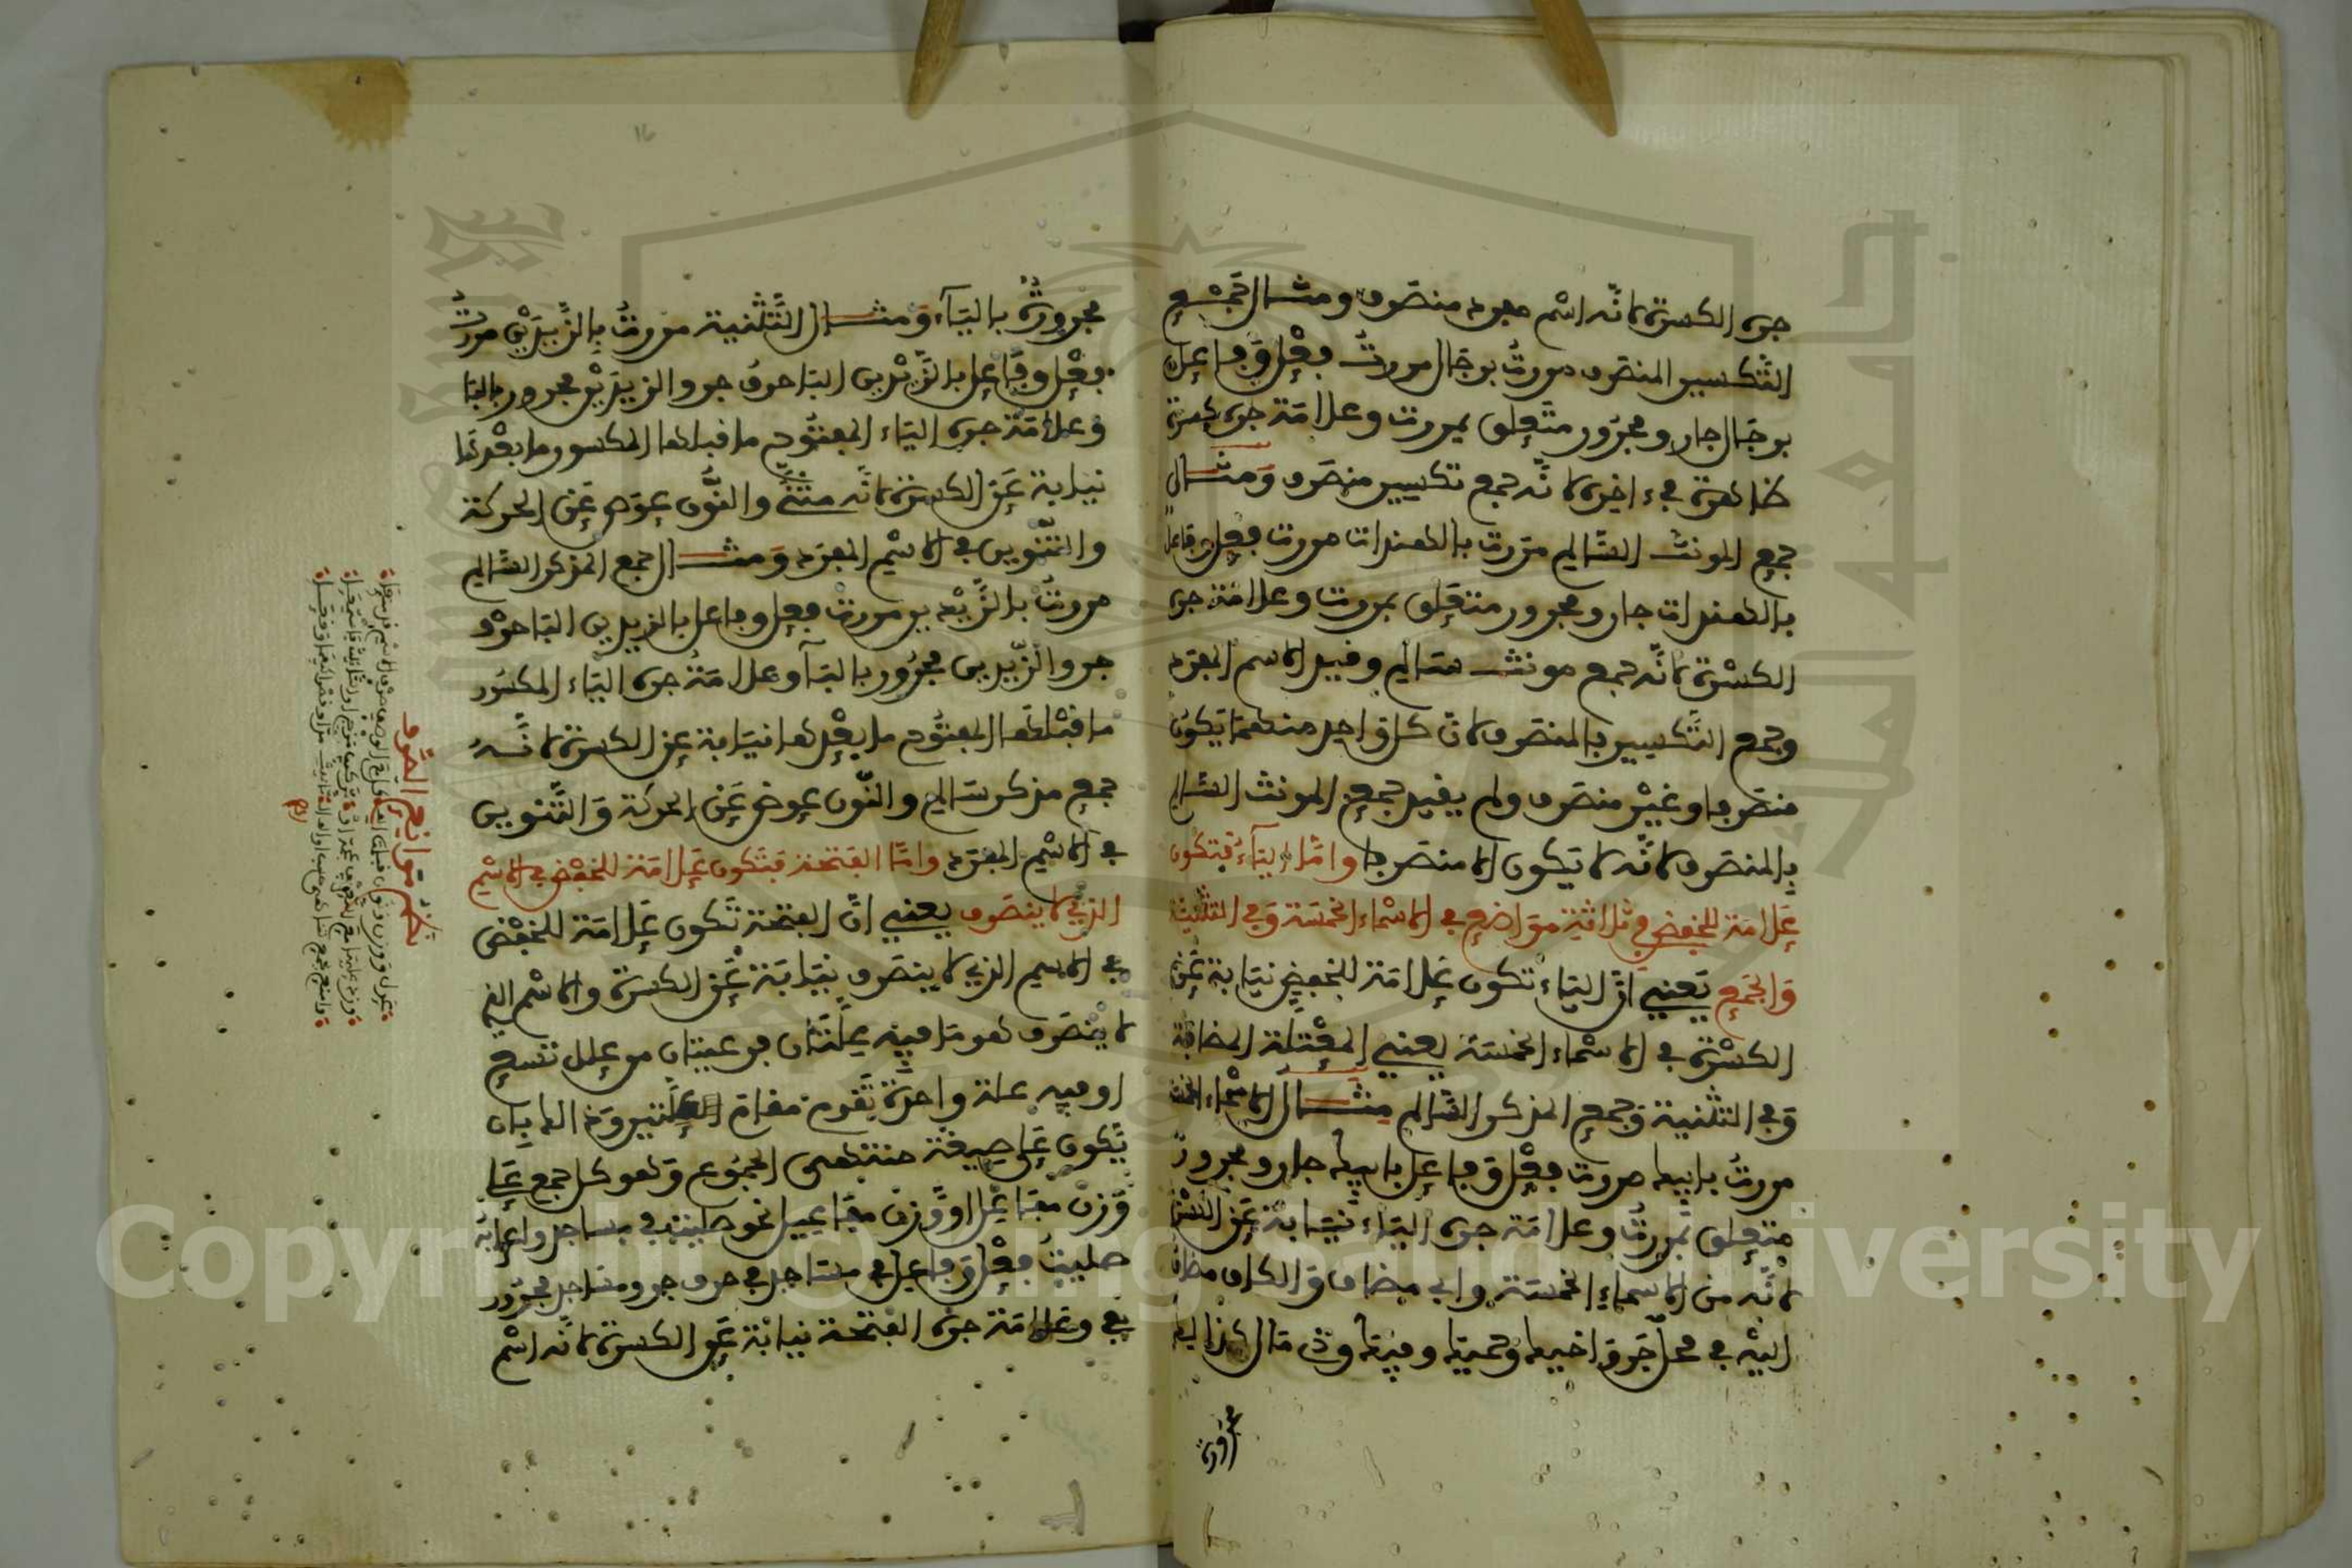 جره الكسرة لانه اسم مفرد منصرف ومثال جمع
التكسير المنصرف مررت برجال مررت فعل وفاعل
برجال جار ومجرور متعلق بمررت وعلامة جره كسرة
ظاهرة في ءاخره لانه جمع تكسير منصرف ومثال
جمع المونث السالم مررت بالهندات مررت فعل وفاعل
بالهندات جار ومجرور متعلق بمررت وعلامة جره
الكسرة لانه جمع مونث سالم وقيد الاسم المفرد
وجمع التكسير بالمنصرف لان كل واحد منهما يكون
منصرفا وغير منصرف ولم يقيد جمع المونث السالم
بالمنصرف لانه لا يكون الا منصرفا واما الياء فتكون
علامة للخفض في ثلاثة مواضع في الاسماء الخمسة وفي التثنية
والجمع يعني ان الياء تكون علامة للخفض نيابة عن
الكسرة في الاسماء الخمسة يعني المعتلة المضافة
وفي التثنية وجمع المذكر السالم مثال الاسماء الخمسة
مررت بابيه مررت فعل وفاعل بابيه جار ومجرور
متعلق بمررت وعلامة جره الياء نيابة عن الكسرة
لانه من الاسماء الخمسة وابي مضاف والهاء مضاف
اليه في محل جر واخيه وحميه وفيه وذي مال كذالك
مجرورة
مجرورة بالياء ومثال التثنية مررت بالزيدين مررت
فعل وفاعل بالزيدين الباء حرف جر والزيدين مجرور بالباء
وعلامة جره الياء المفتوح ما قبلها المكسور ما بعدها
نيابة عن الكسرة لانه مثنى والنون عوض عن الحركة
والتنوين في الاسم المفرد ومثال الجمع المذكر السالم
مررت بالزيدين مررت فعل وفاعل بالزيدين الباء حرف
جر والزيدين مجرور بالباء وعلامة جره الياء المكسور
ما قبلها المفتوح ما بعدها نيابة عن الكسرة لانه
جمع مذكر سالم والنون عوض عن الحركة والتنوين
في الاسم المفرد واما الفتحة فتكون علامة للخفض في الاسم
الذي لا ينصرف يعني ان الفتحة تكون علامة للخفض
في الاسم الذي لا ينصرف نيابة عن الكسرة والاسم الذي
لا ينصرف هو ما فيه علتان فرعيتان من علل تسع
او فيه علة واحدة تقوم مقام العلتين وذالك بان
يكون على صيغة منتهى الجموع وهو كل جمع على
وزن مفاعل او وزن مفاعيل نحو صليت في مساجد واعرابه
صليت فعل وفاعل في مساجد في حرف جر ومساجد مجرور
بفي وعلامة جره الفتحة نيابة عن الكسرة لانه اسم
موانع الصرف
Copyright © King Saud University